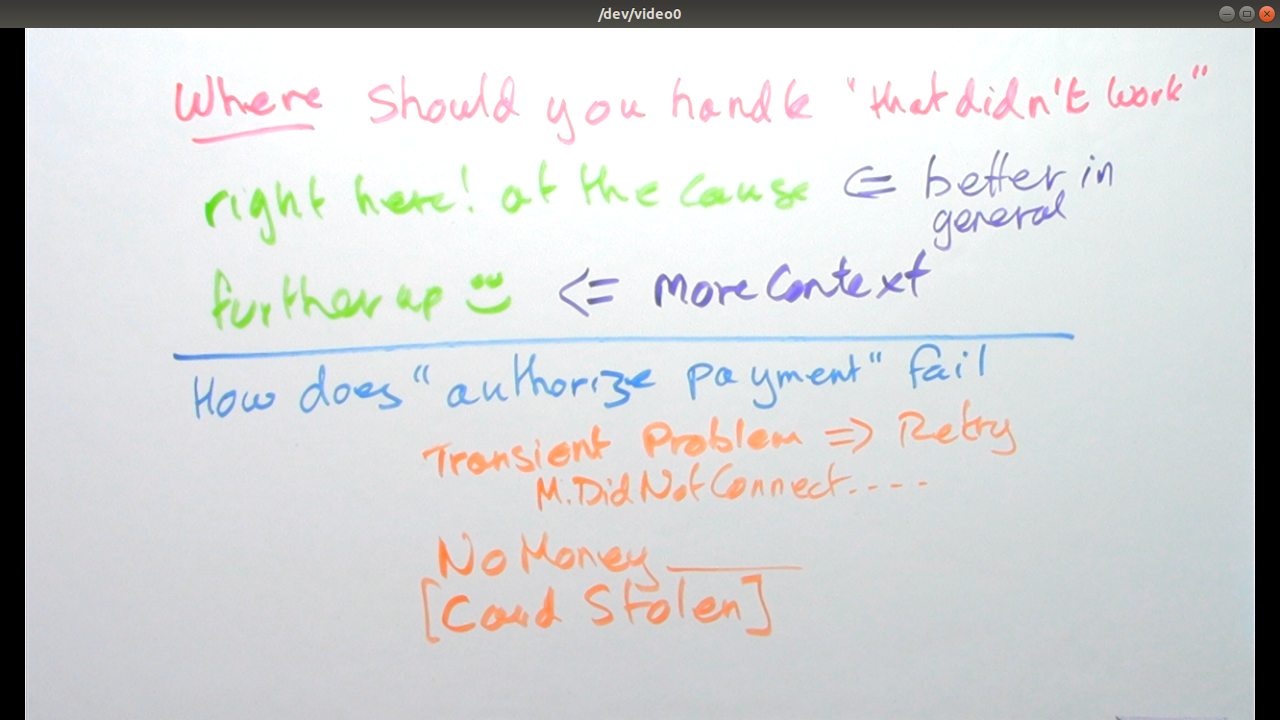 /dev/video0
Where should you handle "that didn't work"
right here! at the cause <= better in
general
further up <= more context
How does "authorize payment" fail
Transient Problem => Retry
M.DidNotConnect....
No Money
[Card Stolen]